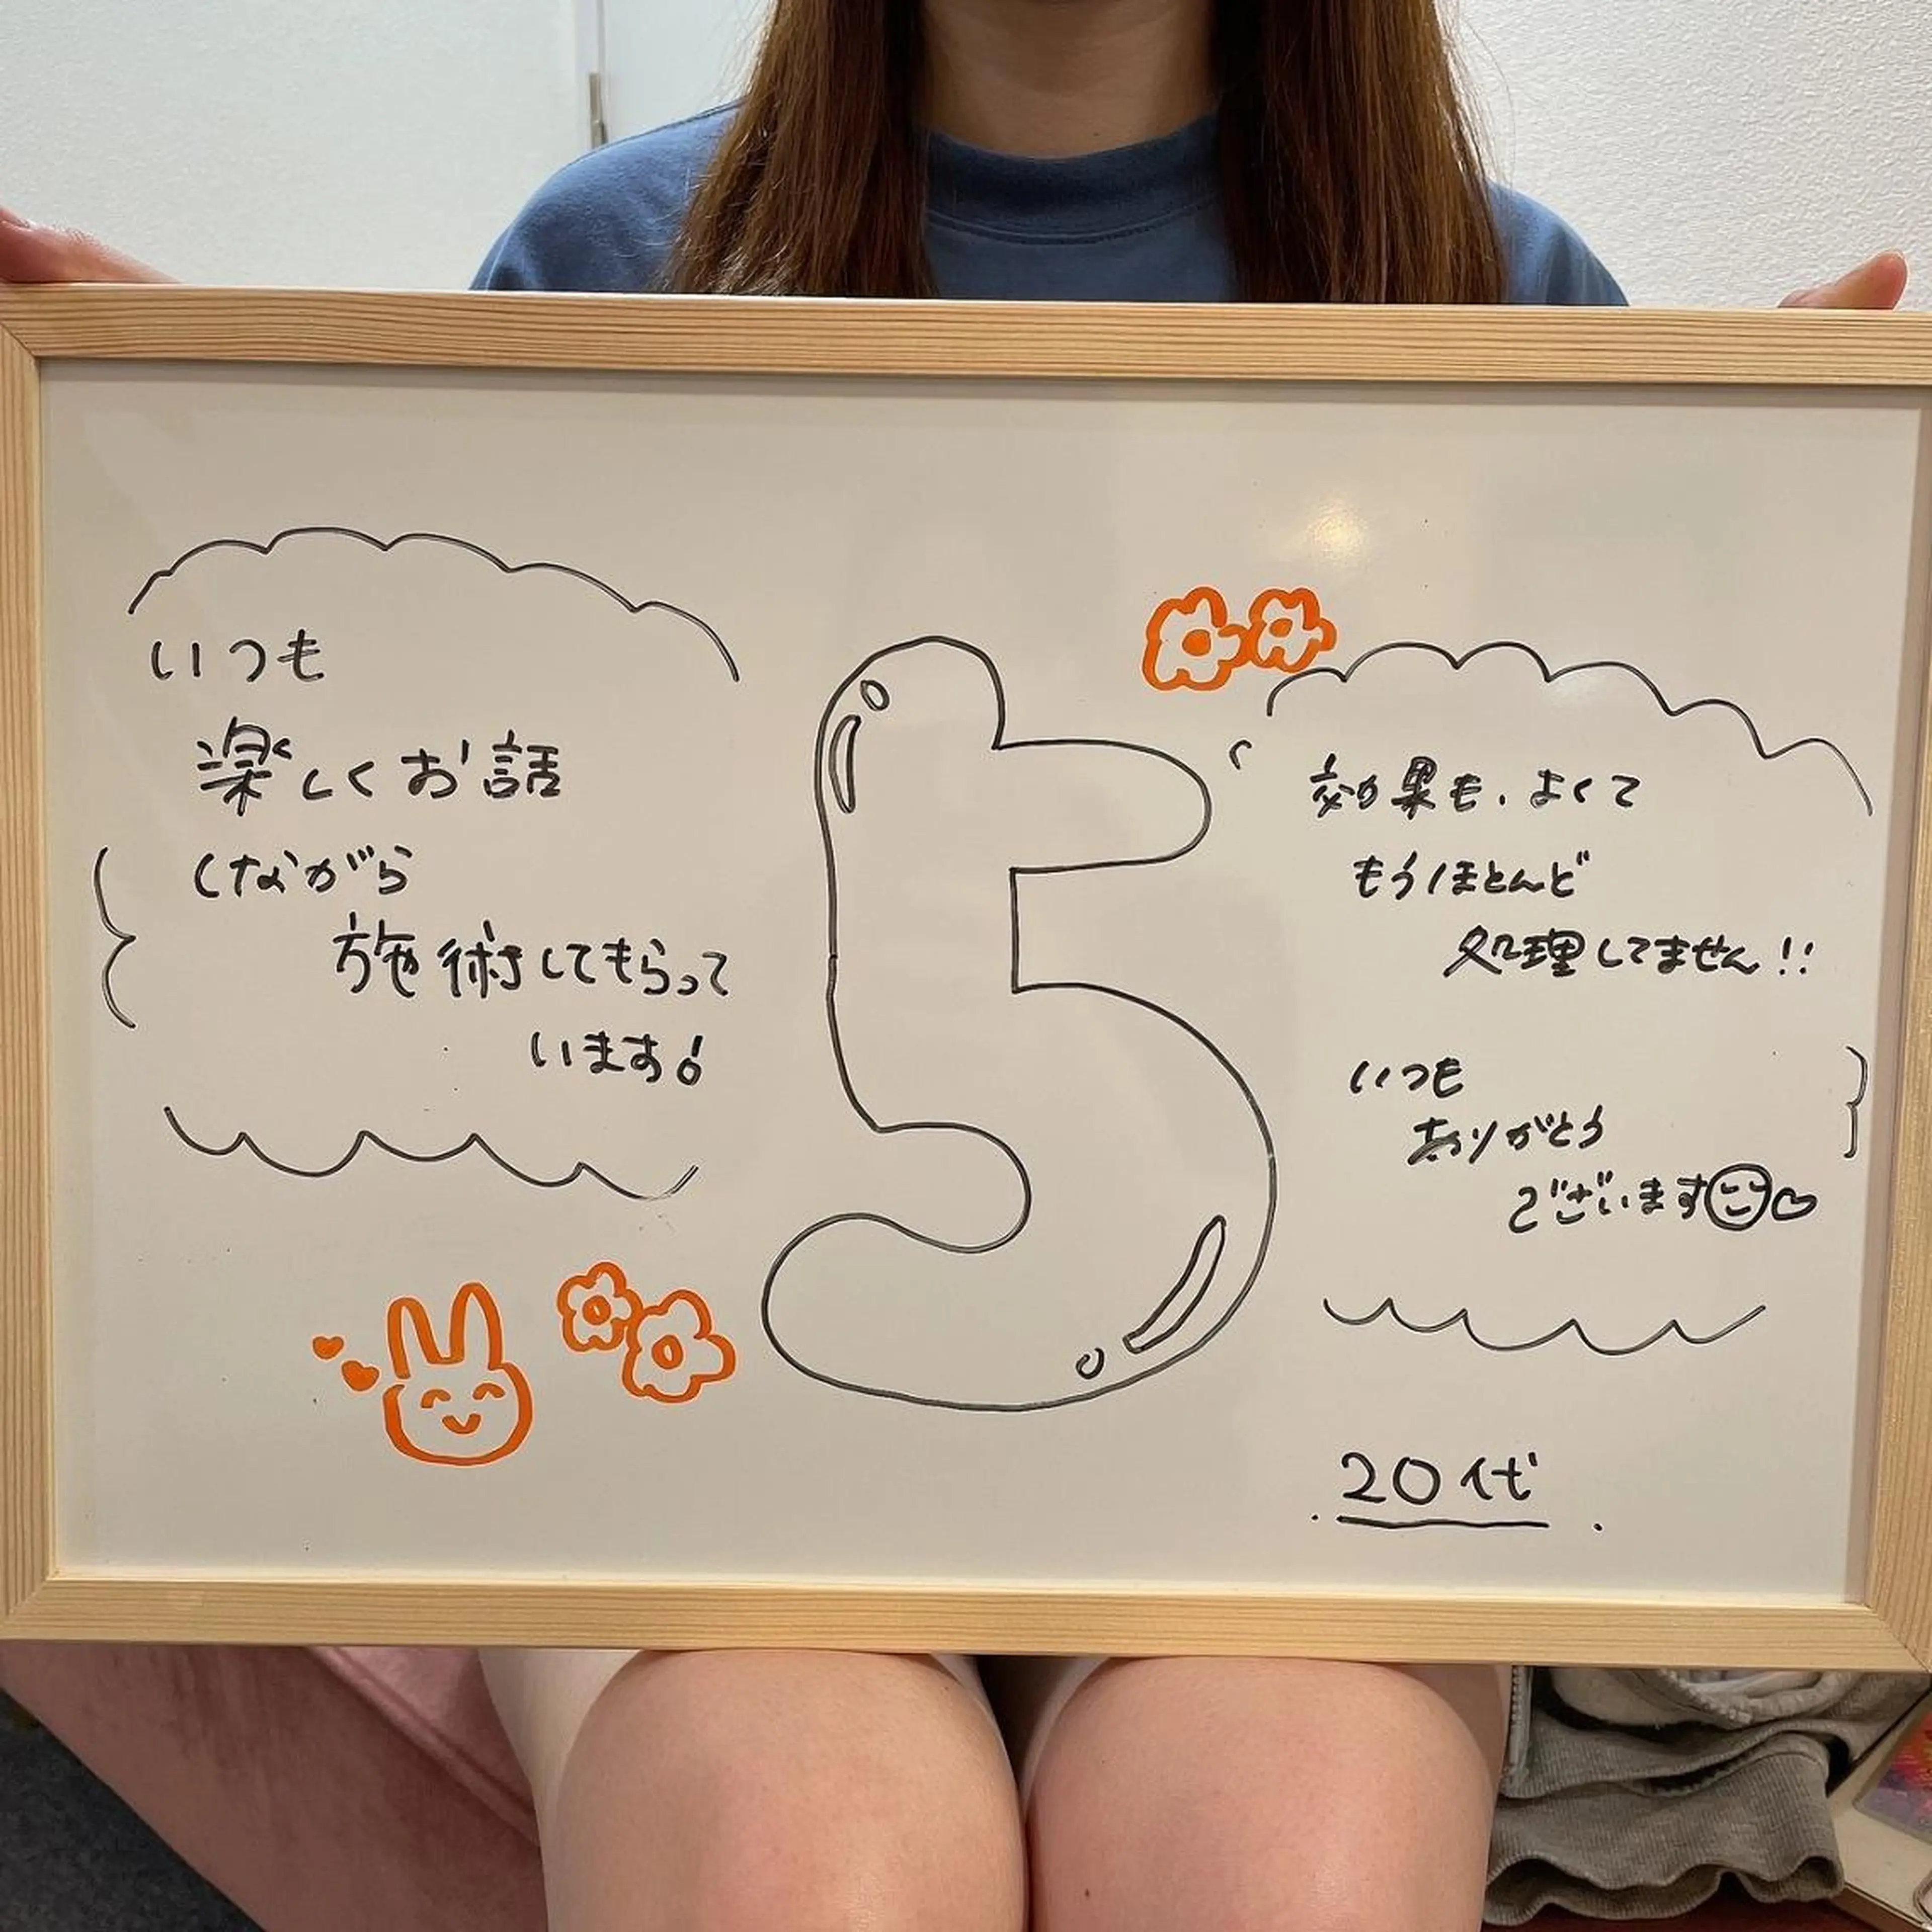 いつも
楽しくお話
しながら
施術してもらって
います!
5
効果も、よくて
もうほとんど
処理してません!!
いつも
ありがとう
ございます
20代